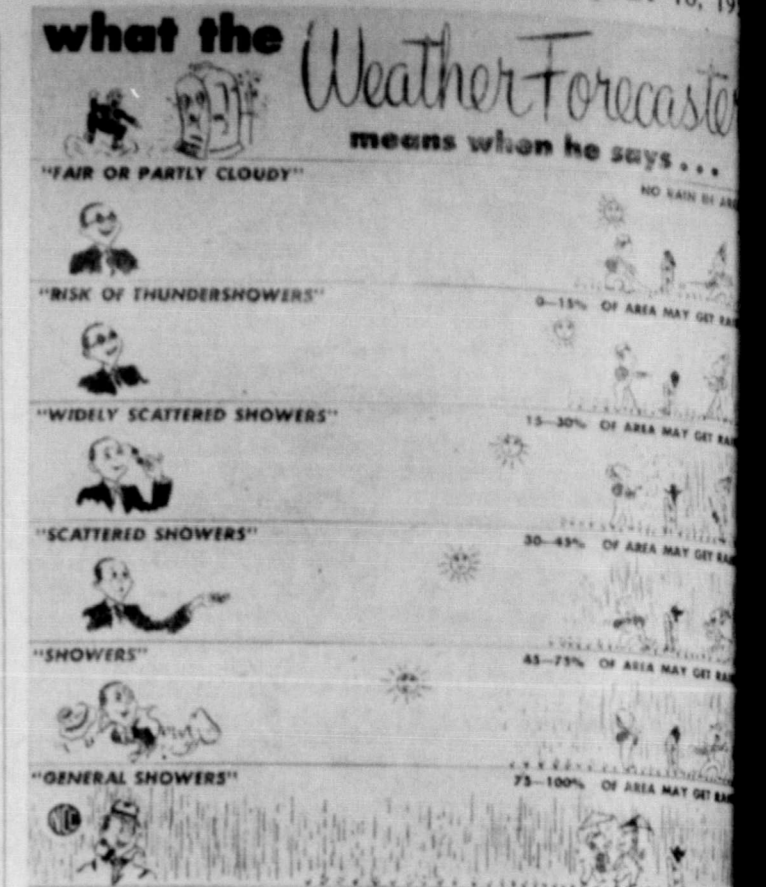 what the
Weather Forecaster
means when he says...
"FAIR OR PARTLY CLOUDY"
NO RAIN IN
"RISK OF THUNDERSHOWERS"
0—15% OF AREA MAY GET
"WIDELY SCATTERED SHOWERS"
15—30% OF AREA MAY GET
"SCATTERED SHOWERS"
30—45% OF AREA MAY GET
"SHOWERS"
45—75% OF AREA MAY GET
"GENERAL SHOWERS"
75—100% OF AREA MAY GET